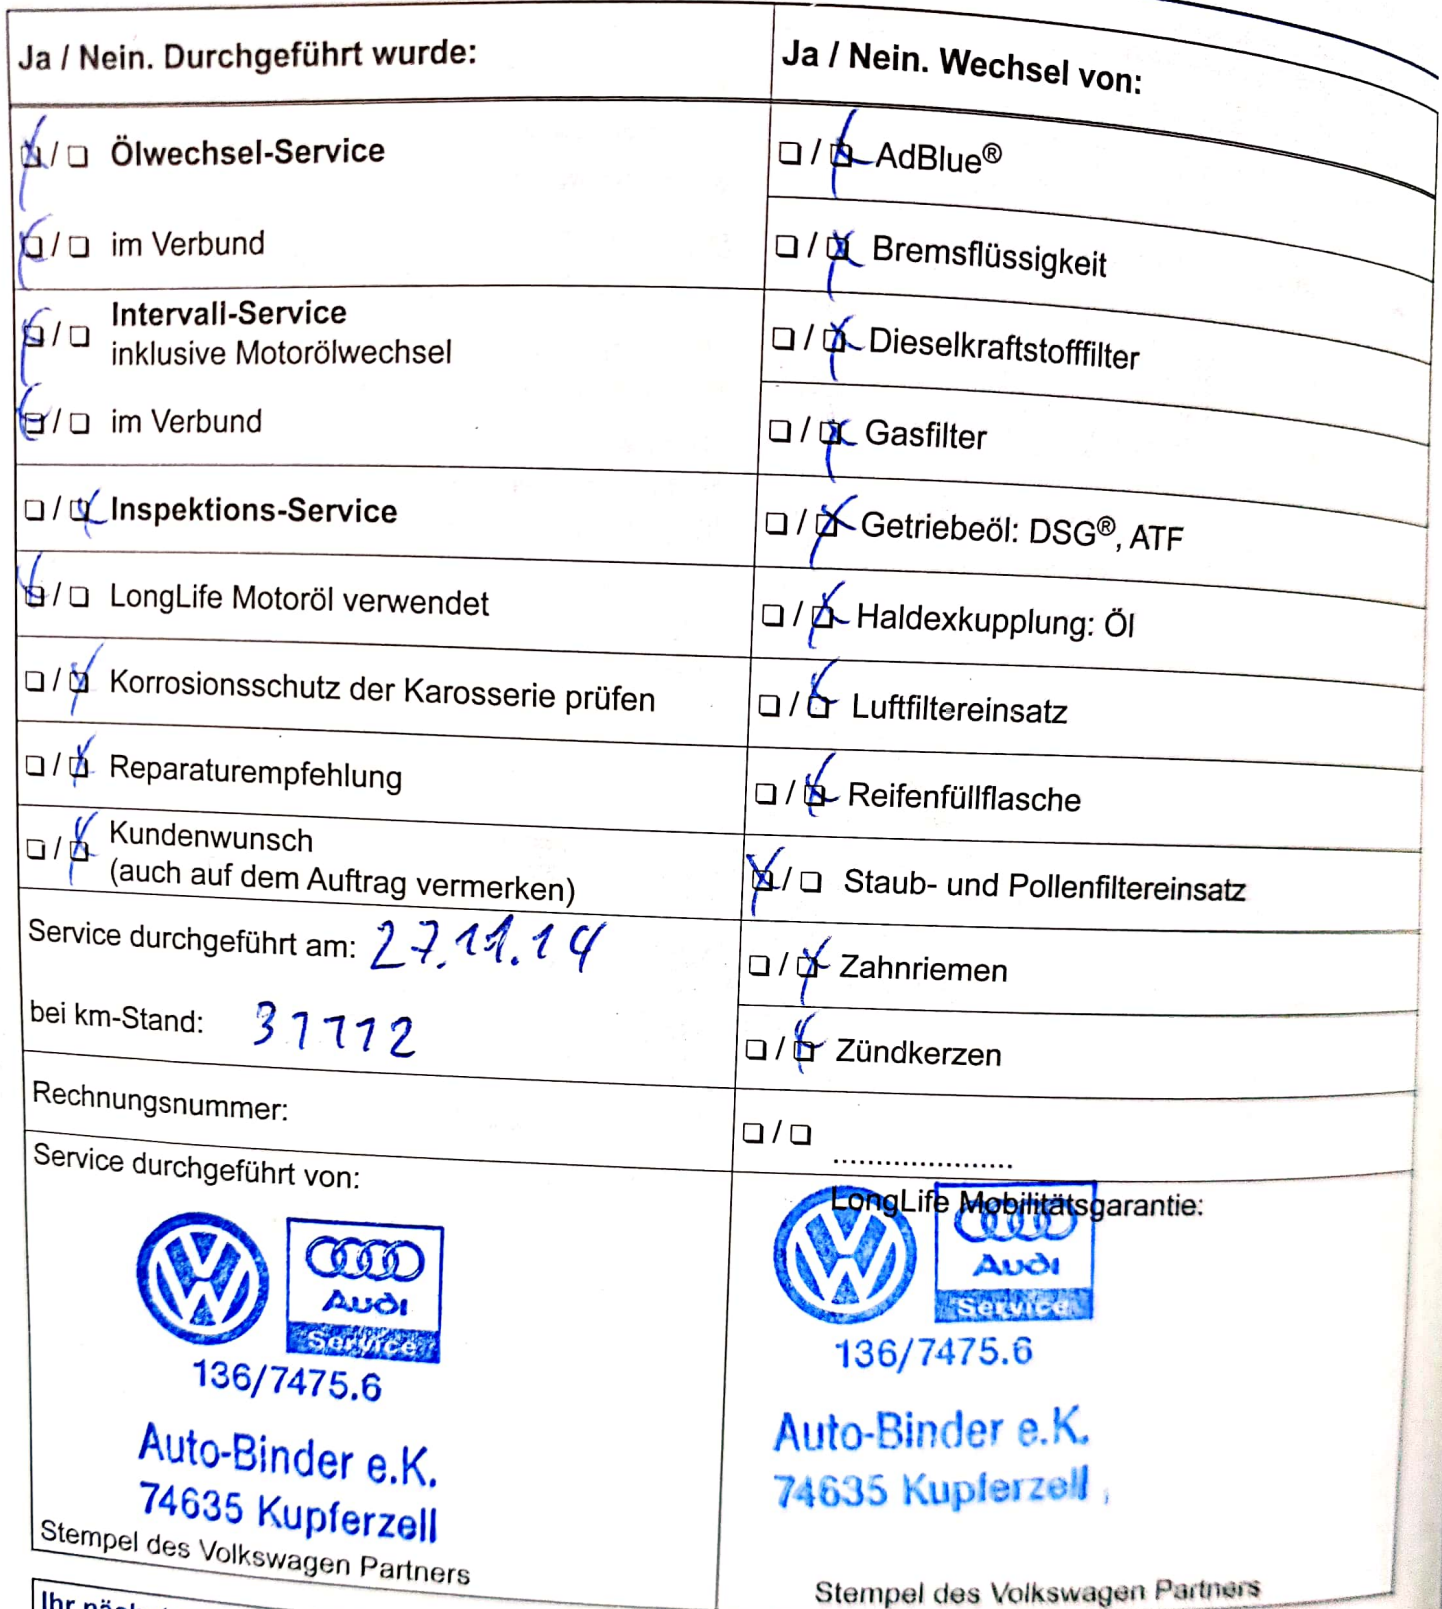 Ja / Nein. Durchgeführt wurde:
☒ / ☐ Ölwechsel-Service
☒ / ☐ im Verbund
☒ / ☐ Intervall-Service
inklusive Motorölwechsel
☒ / ☐ im Verbund
☐ / ☒ Inspektions-Service
☒ / ☐ LongLife Motoröl verwendet
☐ / ☒ Korrosionsschutz der Karosserie prüfen
☐ / ☒ Reparaturempfehlung
☐ / ☒ Kundenwunsch
(auch auf dem Auftrag vermerken)
Service durchgeführt am: 27.11.14
bei km-Stand: 31112
Rechnungsnummer:
Service durchgeführt von:
Audi
Service
136/7475.6
Auto-Binder e.K.
74635 Kupferzell
Stempel des Volkswagen Partners
Ja / Nein. Wechsel von:
☐ / ☒ AdBlue®
☐ / ☒ Bremsflüssigkeit
☐ / ☒ Dieselkraftstofffilter
☐ / ☒ Gasfilter
☐ / ☒ Getriebeöl: DSG®, ATF
☐ / ☒ Haldexkupplung: Öl
☐ / ☒ Luftfiltereinsatz
☐ / ☒ Reifenfüllflasche
☒ / ☐ Staub- und Pollenfiltereinsatz
☐ / ☒ Zahnriemen
☐ / ☒ Zündkerzen
☐ / ☐ .....................
LongLife Mobilitätsgarantie:
Audi
Service
136/7475.6
Auto-Binder e.K.
74635 Kupferzell
Stempel des Volkswagen Partners
Ihr